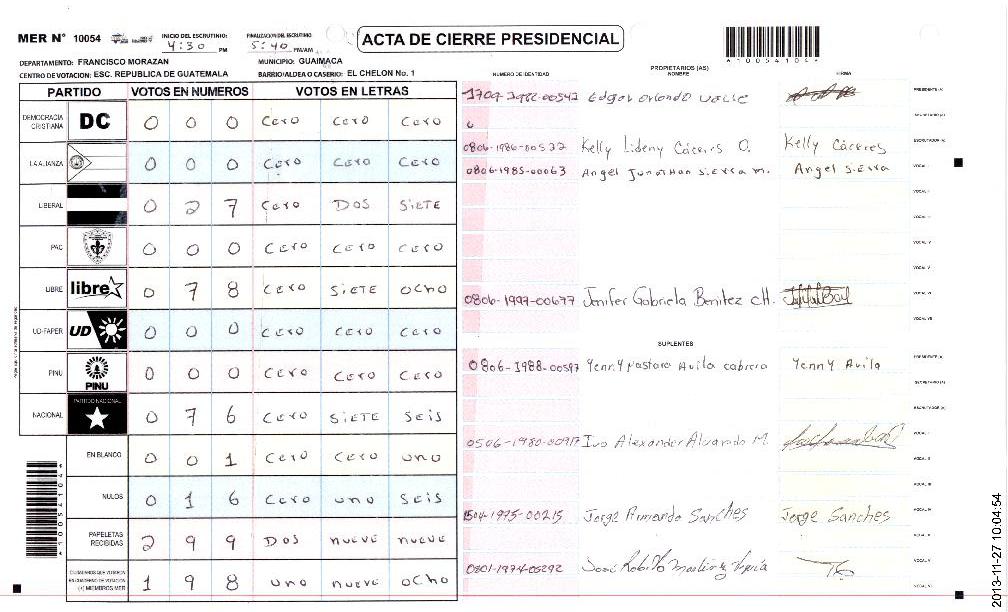 MER N° 10054
INICIO DEL ESCRUTINIO: 4:30 PM
FINALIZACION DEL ESCRUTINIO 5:40 PM/AM
ACTA DE CIERRE PRESIDENCIAL
DEPARTAMENTO: FRANCISCO MORAZAN
MUNICIPIO: GUAIMACA
CENTRO DE VOTACION: ESC. REPUBLICA DE GUATEMALA
BARRIO/ALDEA O CASERIO: EL CHELON No. 1
PARTIDO VOTOS EN NUMEROS VOTOS EN LETRAS
DEMOCRACIA CRISTIANA DC 0 0 0 Cero Cero Cero
0 0 0 Cero Cero Cero
LIBERAL 0 2 7 Cero DOS SiETE
PAC 0 0 0 Cero Cero Cero
LIBRE libre 0 7 8 Cero SiETE OCHO
UD-FAPER UD 0 0 0 Cero Cero Cero
PINU PINU 0 0 0 Cero Cero Cero
NACIONAL PARTIDO NACIONAL 0 7 6 Cero SiETE SEiS
EN BLANCO 0 0 1 Cero Cero uno
NULOS 0 1 6 Cero uno SEiS
PAPELETAS RECIBIDAS 2 9 9 DOS nueve nueve
CIUDADANOS QUE VOTARON EN CUADERNO DE VOTACION (+) MIEMBROS MER 1 9 8 uno nueve OCHO
NUMERO DE IDENTIDAD
PROPIETARIOS (AS)
NOMBRE
FIRMA
Edgar Orlando Valle
PRESIDENTE (A)
SECRETARIO (A)
0806-1986-00522 Kelly Lideny Cáceres O. Kelly Cáceres
ESCRUTADOR (A)
0806-1985-00063 Angel Jonathan Sierra M. Angel Sierra
VOCAL I
VOCAL II
VOCAL III
VOCAL IV
VOCAL V
0806-1997-00677 Jenifer Gabriela Benitez
VOCAL VI
VOCAL VII
SUPLENTES
0806-1988-00597 Yenny Pastora Avila cabrera Yenny Avila
PRESIDENTE (A)
SECRETARIO (A)
ESCRUTADOR (A)
0506-1980-00917 Ivo Alexander Alvarado M.
VOCAL I
VOCAL II
VOCAL III
1504-1975-00215 Jorge Armando Sanches Jorge Sanches
VOCAL IV
VOCAL V
0801-1974-05292 José Robirto
VOCAL VI
2013-11-27 10:04:54